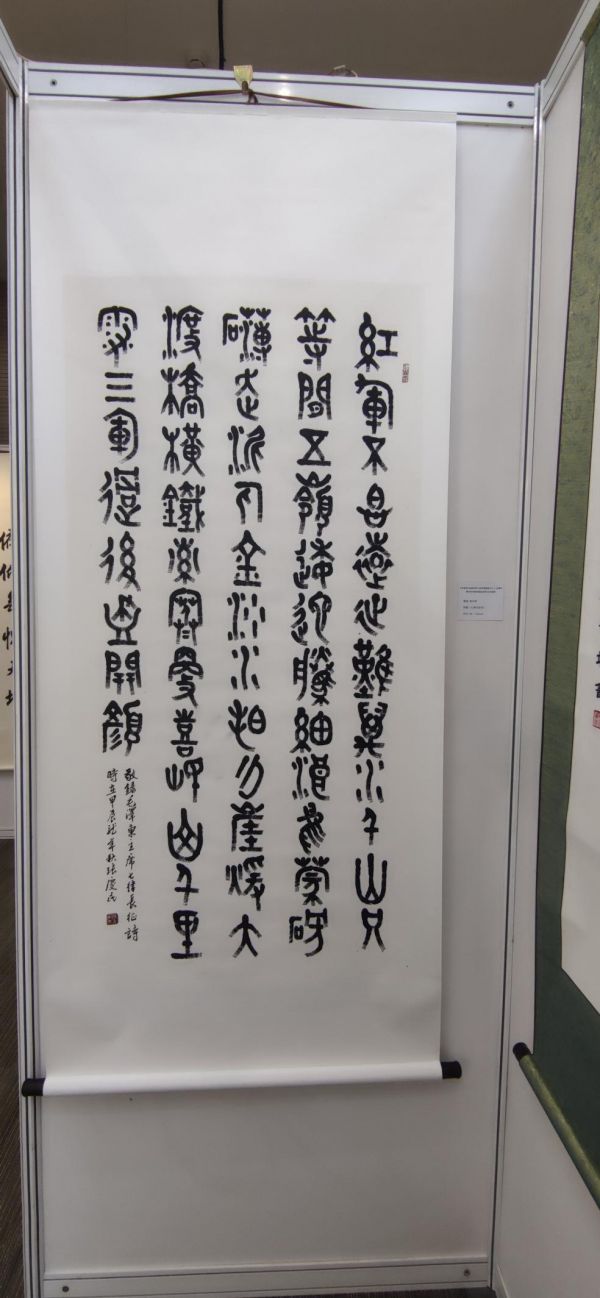 紅軍不怕遠征難萬水千山只
等間五嶺逶迤騰細浪烏蒙磅
礴走泥丸金沙水拍雲崖暖大
渡橋橫鐵索寒更喜岷山千里
雪三軍過後盡開顏
敬錄毛澤東主席七律長征詩
時在甲辰龍年秋張慶民